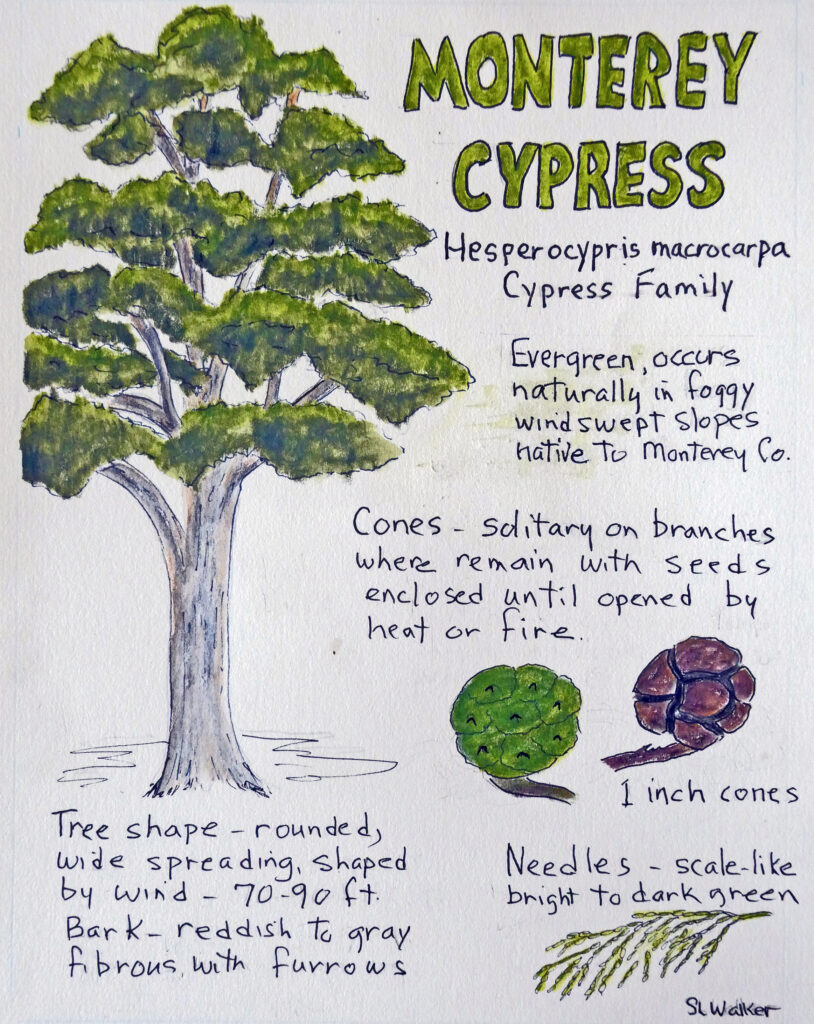 MONTEREY
CYPRESS
Hesperocypris macrocarpa
Cypress Family
Evergreen, occurs
naturally in foggy
windswept slopes
native to Monterey Co.
Cones - solitary on branches
where remain with seeds
enclosed until opened by
heat or fire.
1 inch cones
Tree shape - rounded,
wide spreading, shaped
by wind - 70-90 ft.
Bark - reddish to gray
fibrous, with furrows
Needles - scale-like
bright to dark green
SL Walker